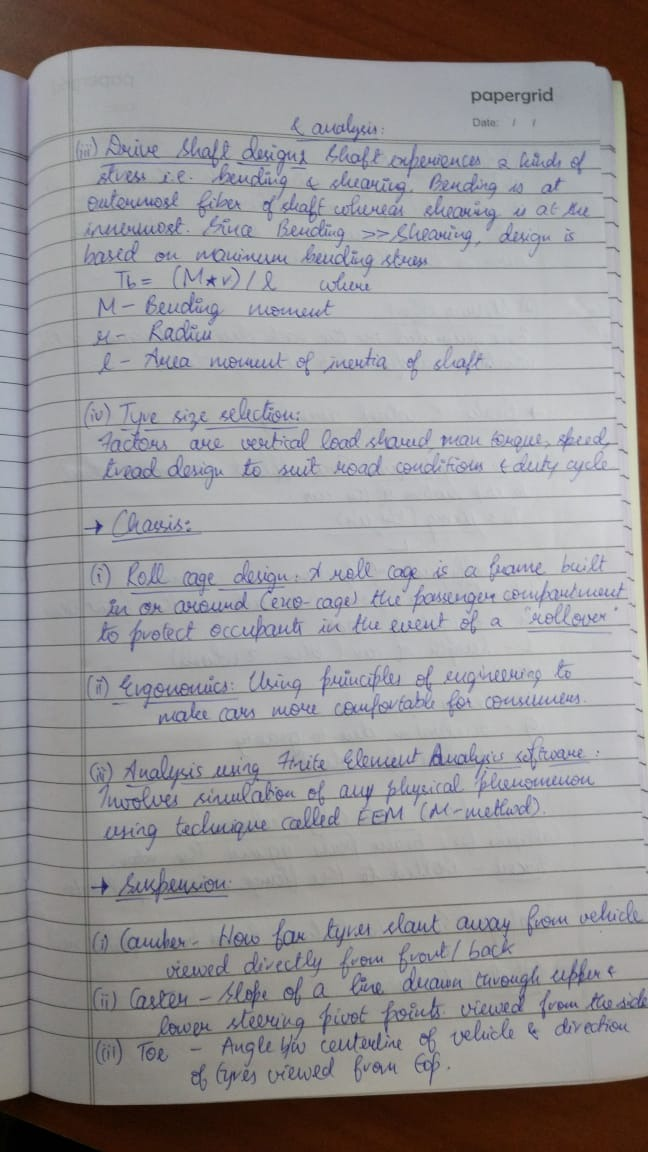 papergrid
Date: / /
& analysis:
(iii) Drive shaft designs Shaft experiences 2 kinds of
stress i.e. bending & shearing. Bending is at
outermost fiber of shaft whereas shearing is at the
innermost. Since Bending >> Shearing, design is
based on maximum bending stress
Tb = (M*r) / l where
M - Bending moment
r - Radius
l - Area moment of inertia of shaft.
(iv) Tyre size selection:
Factors are vertical load shared, max torque, speed,
tread design to suit road conditions & duty cycle
→ Chassis:
(i) Roll cage design: A roll cage is a frame built
in or around (exo-cage) the passenger compartment
to protect occupants in the event of a "rollover"
(ii) Ergonomics: Using principles of engineering to
make cars more comfortable for consumers.
(iii) Analysis using Finite Element Analysis software:
Involves simulation of any physical phenomenon
using technique called FEM (M-method).
→ Suspension
(i) Camber - How far tyres slant away from vehicle
viewed directly from front / back
(ii) Caster - Slope of a line drawn through upper &
lower steering pivot points viewed from the side
(iii) Toe - Angle b/w centerline of vehicle & direction
of tyres viewed from top.